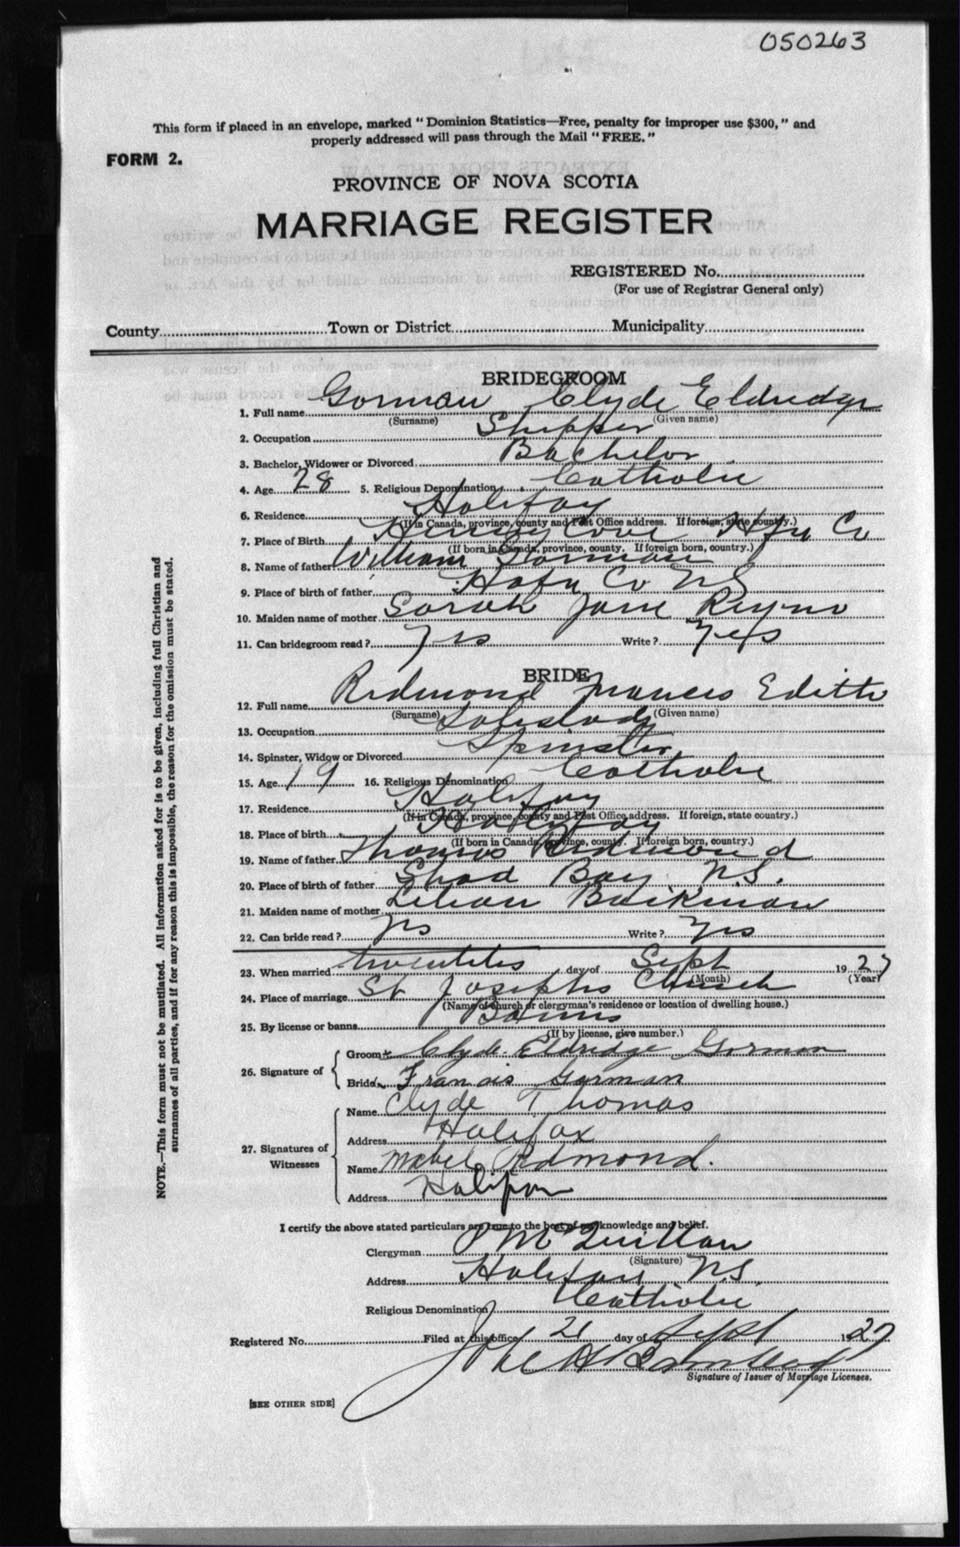 050263
This form if placed in an envelope, marked "Dominion Statistics—Free, penalty for improper use $300," and
properly addressed will pass through the Mail "FREE."
FORM 2.
PROVINCE OF NOVA SCOTIA
MARRIAGE REGISTER
REGISTERED No.
(For use of Registrar General only)
County Town or District Municipality
BRIDEGROOM
1. Full name Gorman Clyde Eldredge
(Surname) (Given name)
2. Occupation Shipper
3. Bachelor, Widower or Divorced Bachelor
4. Age 28 5. Religious Denomination Catholic
6. Residence Halifax
(If in Canada, province, county and Post Office address. If foreign, state country.)
7. Place of Birth Cove Hfx Co
(If born in Canada, province, county. If foreign born, country.)
8. Name of father William Gorman
9. Place of birth of father Hafx Co NS
10. Maiden name of mother Sarah Jane Reyno
11. Can bridegroom read? Yes Write? Yes
BRIDE
12. Full name Redmond Frances Edith
(Surname) (Given name)
13. Occupation Saleslady
14. Spinster, Widow or Divorced Spinster
15. Age 19 16. Religious Denomination Catholic
17. Residence Halifax
(If in Canada, province, county and Post Office address. If foreign, state country.)
18. Place of birth Halifax
(If born in Canada, province, county. If foreign born, country.)
19. Name of father Thomas Redmond
20. Place of birth of father Shad Bay N.S.
21. Maiden name of mother Lilian
22. Can bride read? Yes Write? Yes
23. When married twentieth day of Sept 1927
(Month) (Year)
24. Place of marriage St Josephs Church
(Name of church or clergyman's residence or location of dwelling house.)
25. By license or banns Banns
(If by license, give number.)
26. Signature of
Groom Clyde Eldridge Gorman
Bride Francis Gorman
27. Signatures of Witnesses
Name Clyde Thomas
Address Halifax
Name Mabel Redmond.
Address Halifax
I certify the above stated particulars are true to the best of my knowledge and belief.
Clergyman McQuillan
(Signature)
Address Halifax N.S.
Religious Denomination Catholic
Registered No. Filed at this office 21 day of Sept 1927
Signature of Issuer of Marriage Licenses.
[SEE OTHER SIDE]
NOTE.—This form must not be mutilated. All information asked for is to be given, including full Christian and
surnames of all parties, and if for any reason this is impossible, the reason for the omission must be stated.